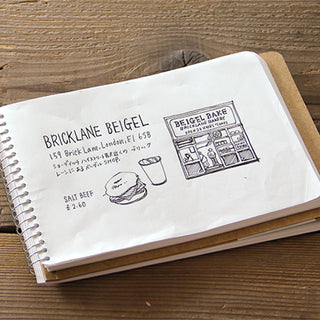 BRICKLANE BEIGEL
159 Brick Lane, London, E1 6SB
ショーディッチ ハイストリート駅近くの ブリック
レーンにあるベーグルSHOP.
SALT BEEF
£2.60
BEIGEL BAKE
BRICKLANE BAKERY